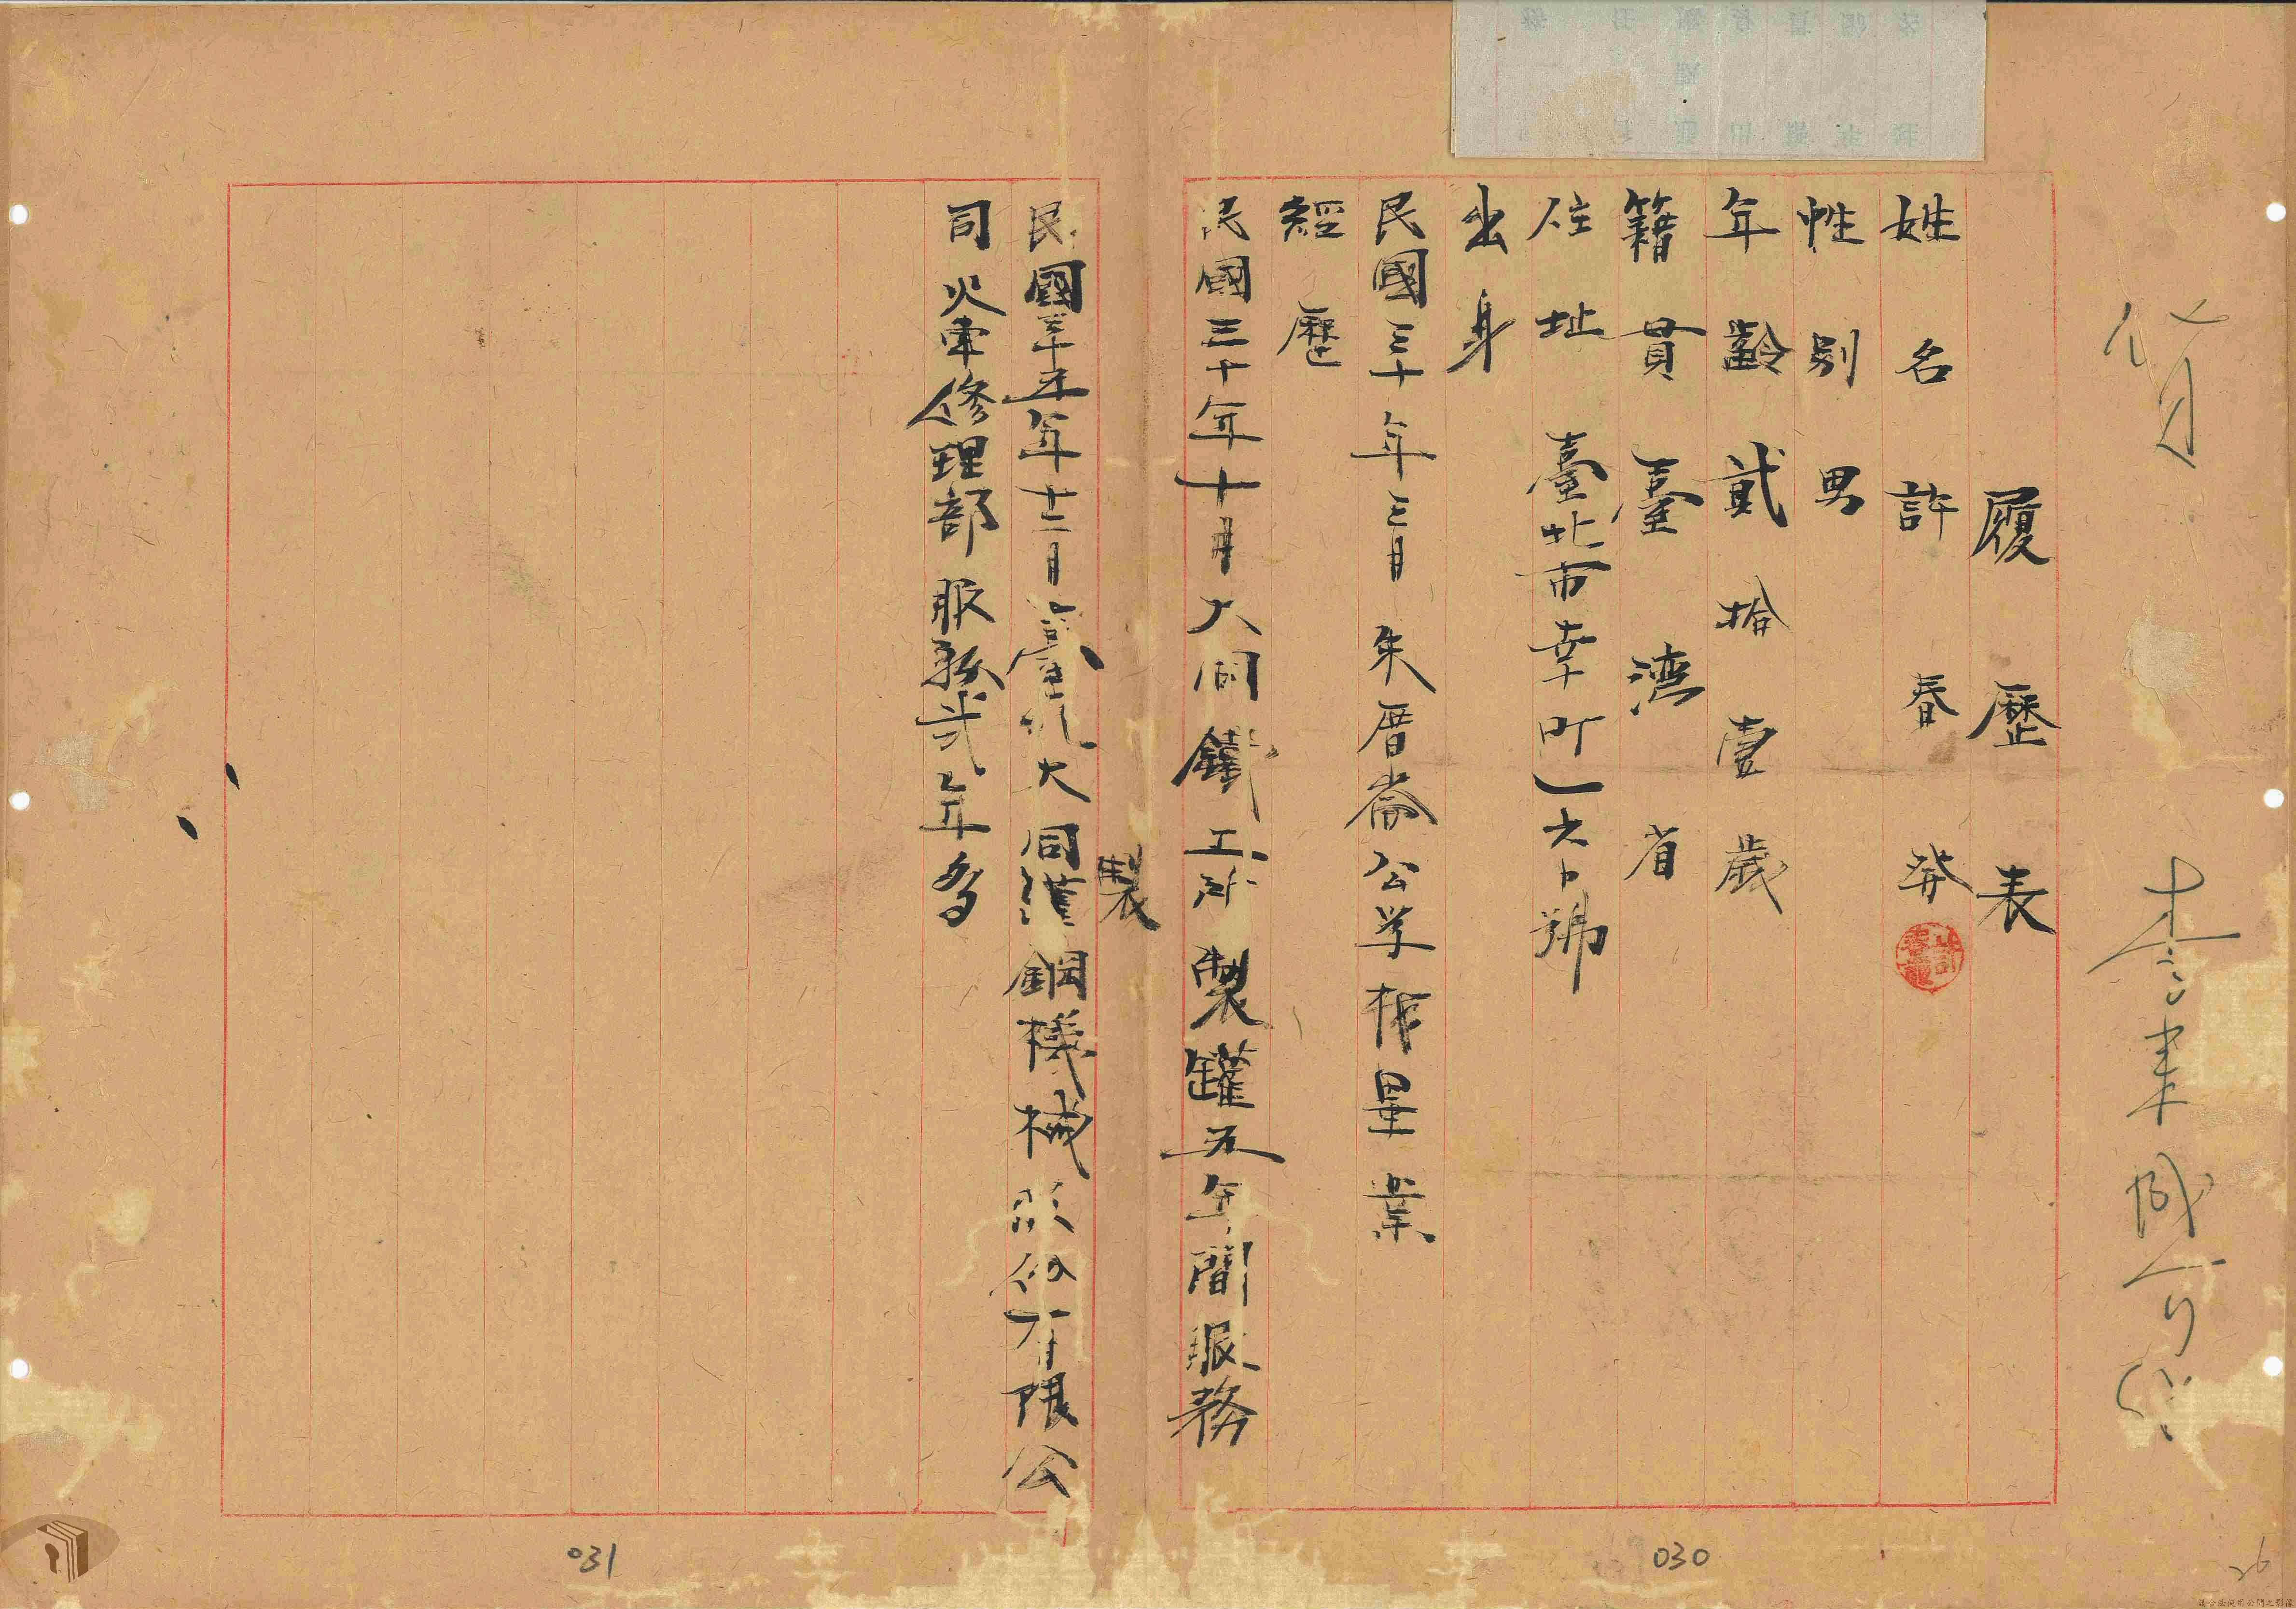 履歷表
姓名 許春發
性別 男
年齡 貳拾壹歲
籍貫 臺湾省
住址 臺北市幸町一六卜號
出身
民國三十年三月 朱厝崙公学校畢業
經歷
民國三十年十月大同鐵工所製罐五年間服務
製
民國三十五年十二月臺北大同鋼機械股份有限公
司火車修理部服務貳年多
030
031
26